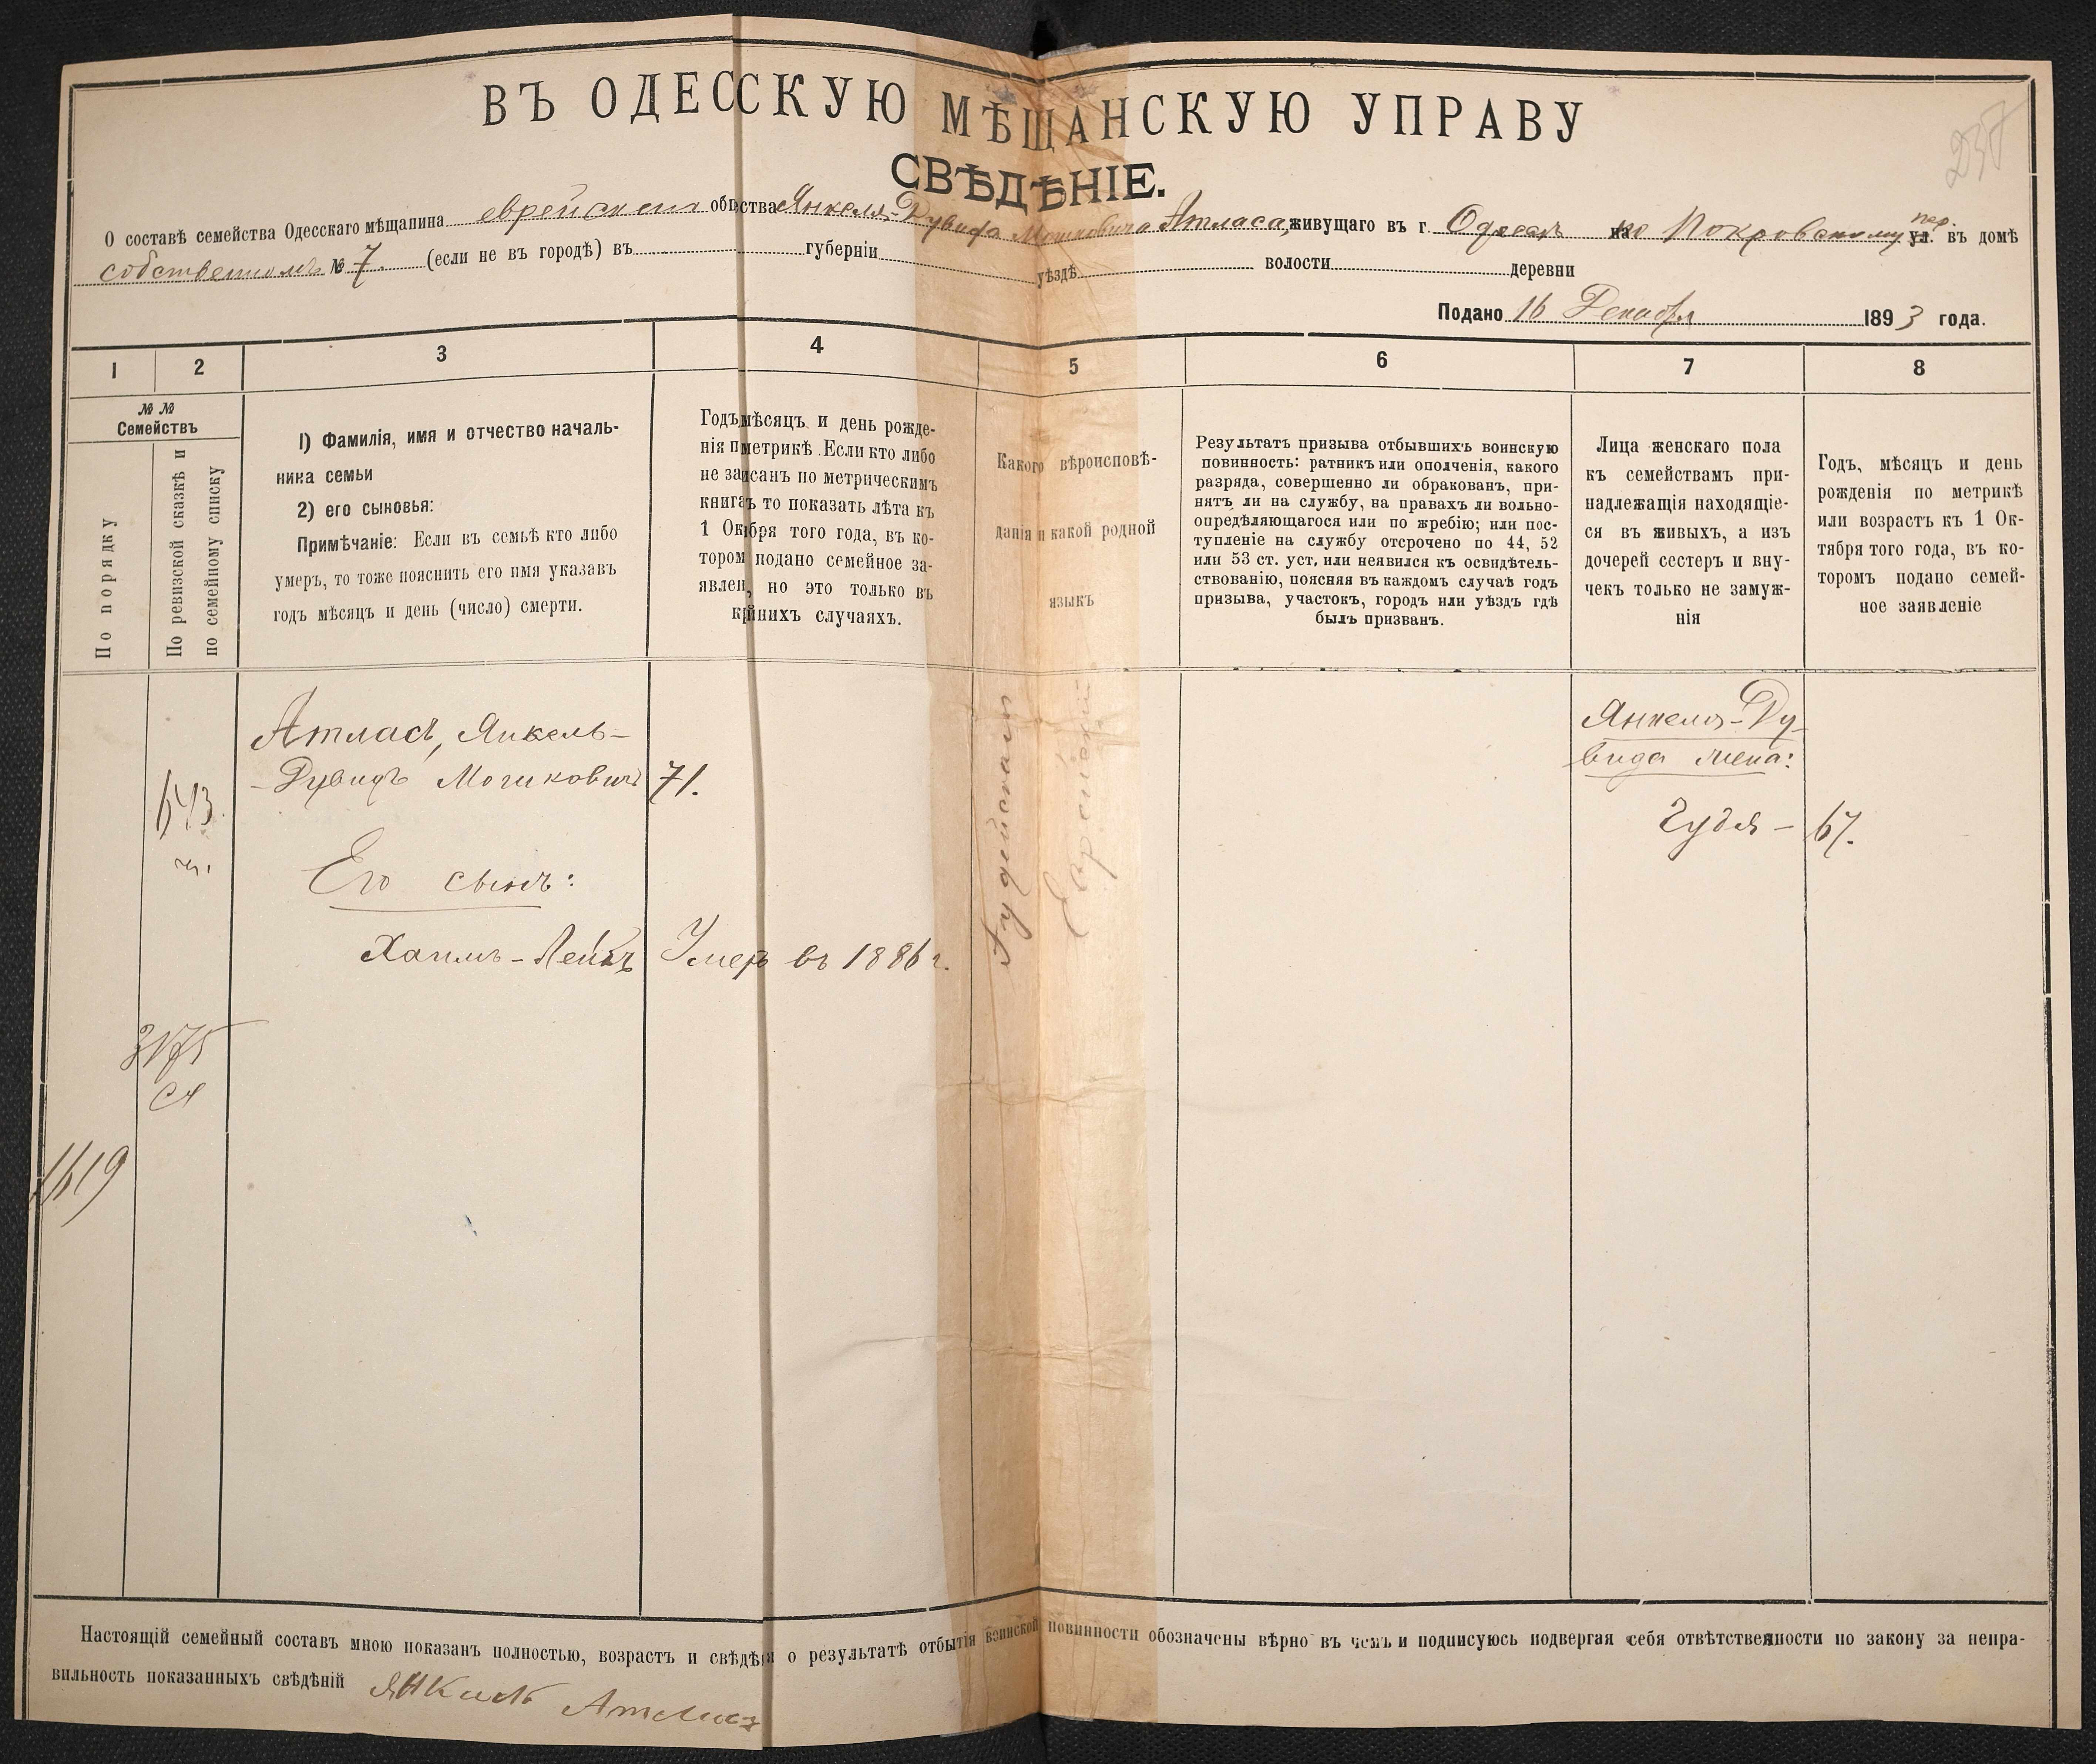 ВЪ ОДЕССКУЮ МѢЩАНСКУЮ УПРАВУ
СВѢДѢНІЕ.
О составѣ семейства Одесскаго мѣщанина еврейскаго общества Янкеля-Дувида Мошковича Атласа, живущаго въ г. Одессѣ по Покровскому пер. ул. въ домѣ
собственномъ № 7. (если не въ городѣ) въ губерніи уѣздѣ волости деревни
Подано 16 Декабря 1893 года.
1 2 3 4 5 6 7 8
№ №
Семействъ
По порядку
По ревизской сказкѣ и
по семейному списку
1) Фамилія, имя и отчество началь-
ника семьи
2) его сыновья:
Примѣчаніе: Если въ семьѣ кто либо
умеръ, то тоже пояснить его имя указавъ
годъ мѣсяцъ и день (число) смерти.
Годъ мѣсяцъ и день рожде-
нія п метрикѣ. Если кто либо
не записанъ по метрическимъ
книгаъ то показать лѣта къ
1 Окбря того года, въ ко-
тором подано семейное за-
явлен, но это только въ
крйнихъ случаяхъ.
Какого вѣроисповѣ-
данія и какой родной
языкъ
Результатъ призыва отбывшихъ воинскую
повинность: ратникъ или ополченія, какого
разряда, совершенно ли обракован, при-
нятъ ли на службу, на правахъ ли вольно-
опредѣляющагося или по жребію; или пос-
тупленіе на службу отсрочено по 44, 52
или 53 ст. уст, или неявился къ освидѣтель-
ствованію, поясняя въ каждомъ случаѣ годъ
призыва, участокъ, городъ или уѣздъ гдѣ
былъ призванъ.
Лица женскаго пола
къ семействамъ при-
надлежащія находящіе-
ся въ живыхъ, а изъ
дочерей сестеръ и вну-
чекъ только не замуж-
нія
Годъ, мѣсяцъ и день
рожденія по метрикѣ
или возрастъ къ 1 Ок-
тября того года, въ ко-
торомъ подано семей-
ное заявленіе
Атласъ, Янкель-
-Дувидъ Мошковичъ 71.
643.
Его сынъ:
Хаимъ-Лейбъ Умеръ въ 1886 г.
Іудейскаго
Еврейскій
Янкеля-Ду-
вида жена:
Гудя - 67.
3175
1619
Настоящій семейный составъ мною показанъ полностью, возрастъ и свѣдѣнія о результатѣ отбытія воинской повинности обозначены вѣрно въ чемъ и подписуюсь подвергая себя отвѣтственности по закону за непра-
вильность показанныхъ свѣдѣній Янкиль Атласъ